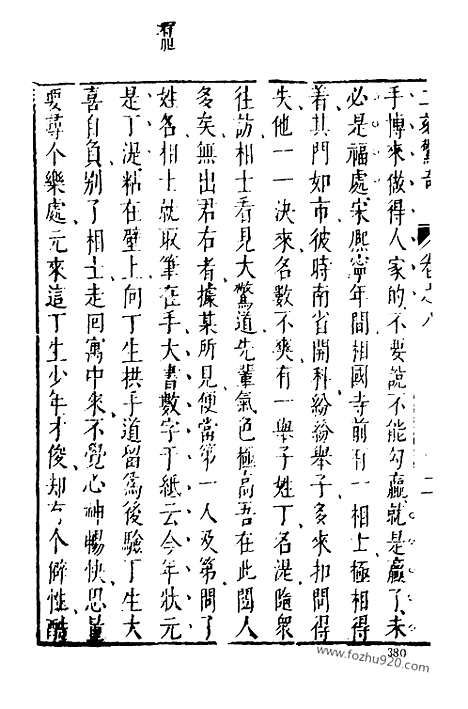 二刻驚奇 卷之八 二
手博來做得人家的不要說不能勾贏就是贏了未
必是福處宋熈寧年間相國寺前有一相士極相得
着其門如市彼時南省開科紛紛舉子多來扣問得
失他一一決來名數不爽有一舉子姓丁名湜隨衆
往訪相士看見大驚道先輩氣色極高吾在此閱人
多矣無出君右者據某所見便當第一人及第問了
姓名相士就取筆在手大書數字于紙云今年狀元
是丁湜粘在壁上向丁生拱手道留爲後驗丁生大
喜自負別了相士走回寓中來不覺心神暢快思量
要尋个樂處元來這丁生少年才俊却有个僻性酷
380
www.fozhu920.com